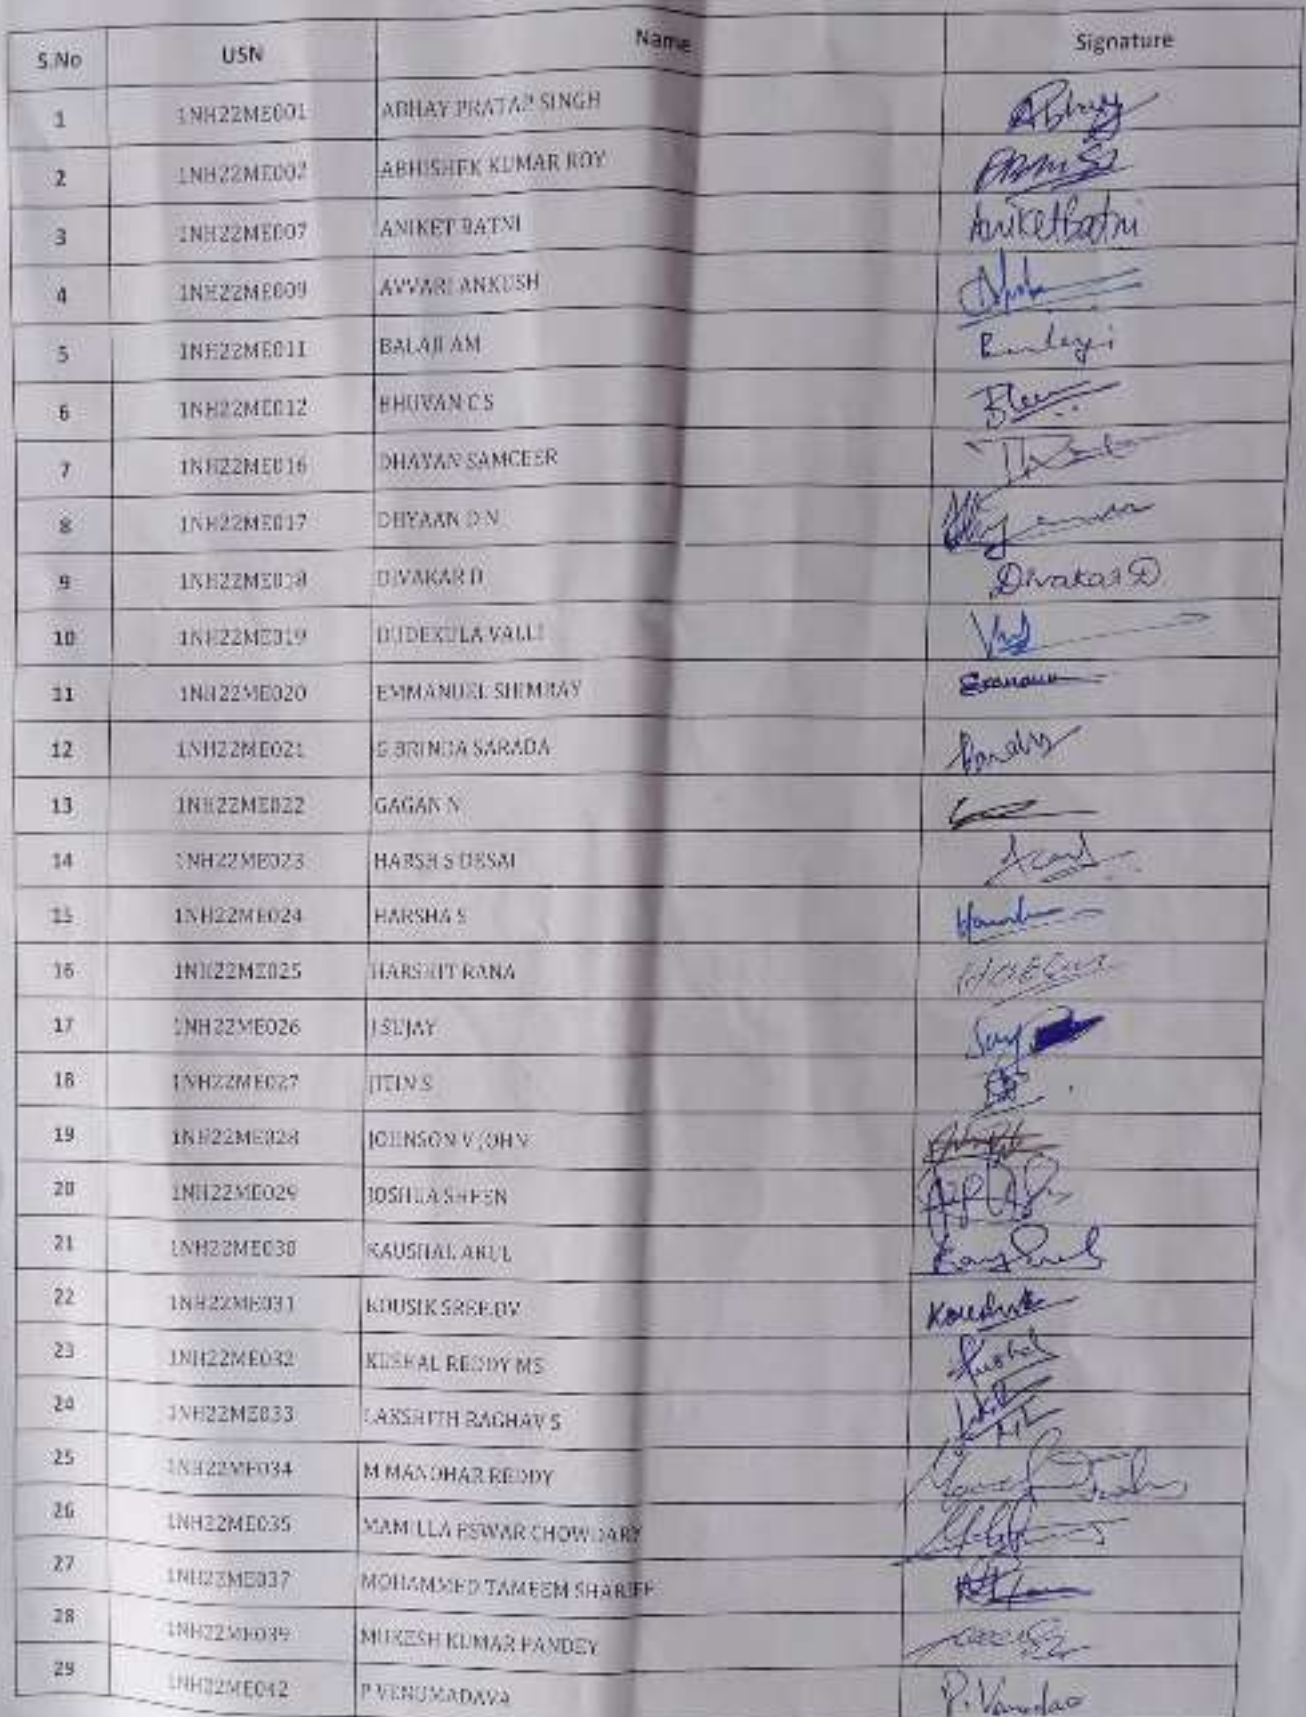 S.No USN Name Signature
1 1NH22ME001 ABHAY PRATAP SINGH Abhay
2 1NH22ME002 ABHISHEK KUMAR ROY
3 1NH22ME007 ANIKET BATNI Aniketbatni
4 1NH22ME009 AVVARI ANKUSH
5 1NH22ME011 BALAJI AM Balaji
6 1NH22ME012 BHUVAN C S
7 1NH22ME016 DHAYAN SAMCEER
8 1NH22ME017 DHYAAN D N
9 1NH22ME018 DIVAKAR D Divakar D
10 1NH22ME019 DUDEKULA VALLI
11 1NH22ME020 EMMANUEL SHIMRAY
12 1NH22ME021 G BRINDA SARADA
13 1NH22ME022 GAGAN N
14 1NH22ME023 HARSH S DESAI
15 1NH22ME024 HARSHA S
16 1NH22ME025 HARSHIT RANA
17 1NH22ME026 J SUJAY
18 1NH22ME027 JITIN S
19 1NH22ME028 JOHNSON V JOHN
20 1NH22ME029 JOSHUA SHEEN
21 1NH22ME030 KAUSHAL ARUL
22 1NH22ME031 KOUSIK SREE DV
23 1NH22ME032 KUSHAL REDDY MS Kushal
24 1NH22ME033 LAKSHITH RAGHAV S
25 1NH22ME034 M MANOHAR REDDY
26 1NH22ME035 MAMILLA ESWAR CHOWDARY
27 1NH22ME037 MOHAMMED TAMEEM SHARIFF
28 1NH22ME039 MUKESH KUMAR PANDEY
29 1NH22ME042 P VENUMADAVA